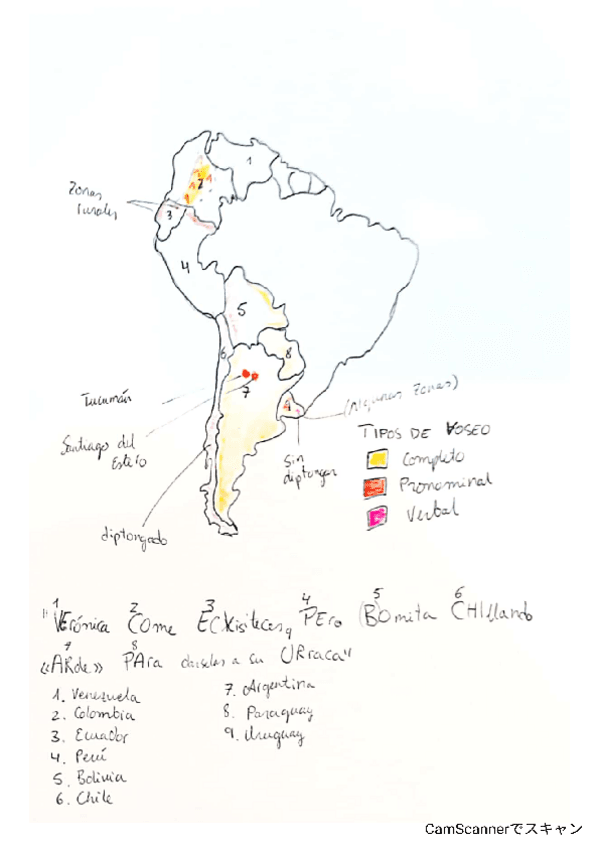 1
2
Zonas
rurales
3
4
5
6
8
7
Tucumán
(Algunas zonas)
Santiago del
Estero
Sin
diptongar
TIPOS DE VOSEO
Completo
Pronominal
Verbal
diptongado
1 2 3 4 5 6
"VErónica COme ECXisiteces, PEro (BOmita CHIllando
7 8
«ARde» PAra dárselas a su URraca"
1. Venezuela
2. Colombia
3. Ecuador
4. Perú
5. Bolivia
6. Chile
7. Argentina
8. Paraguay
9. Uruguay
CamScannerでスキャン